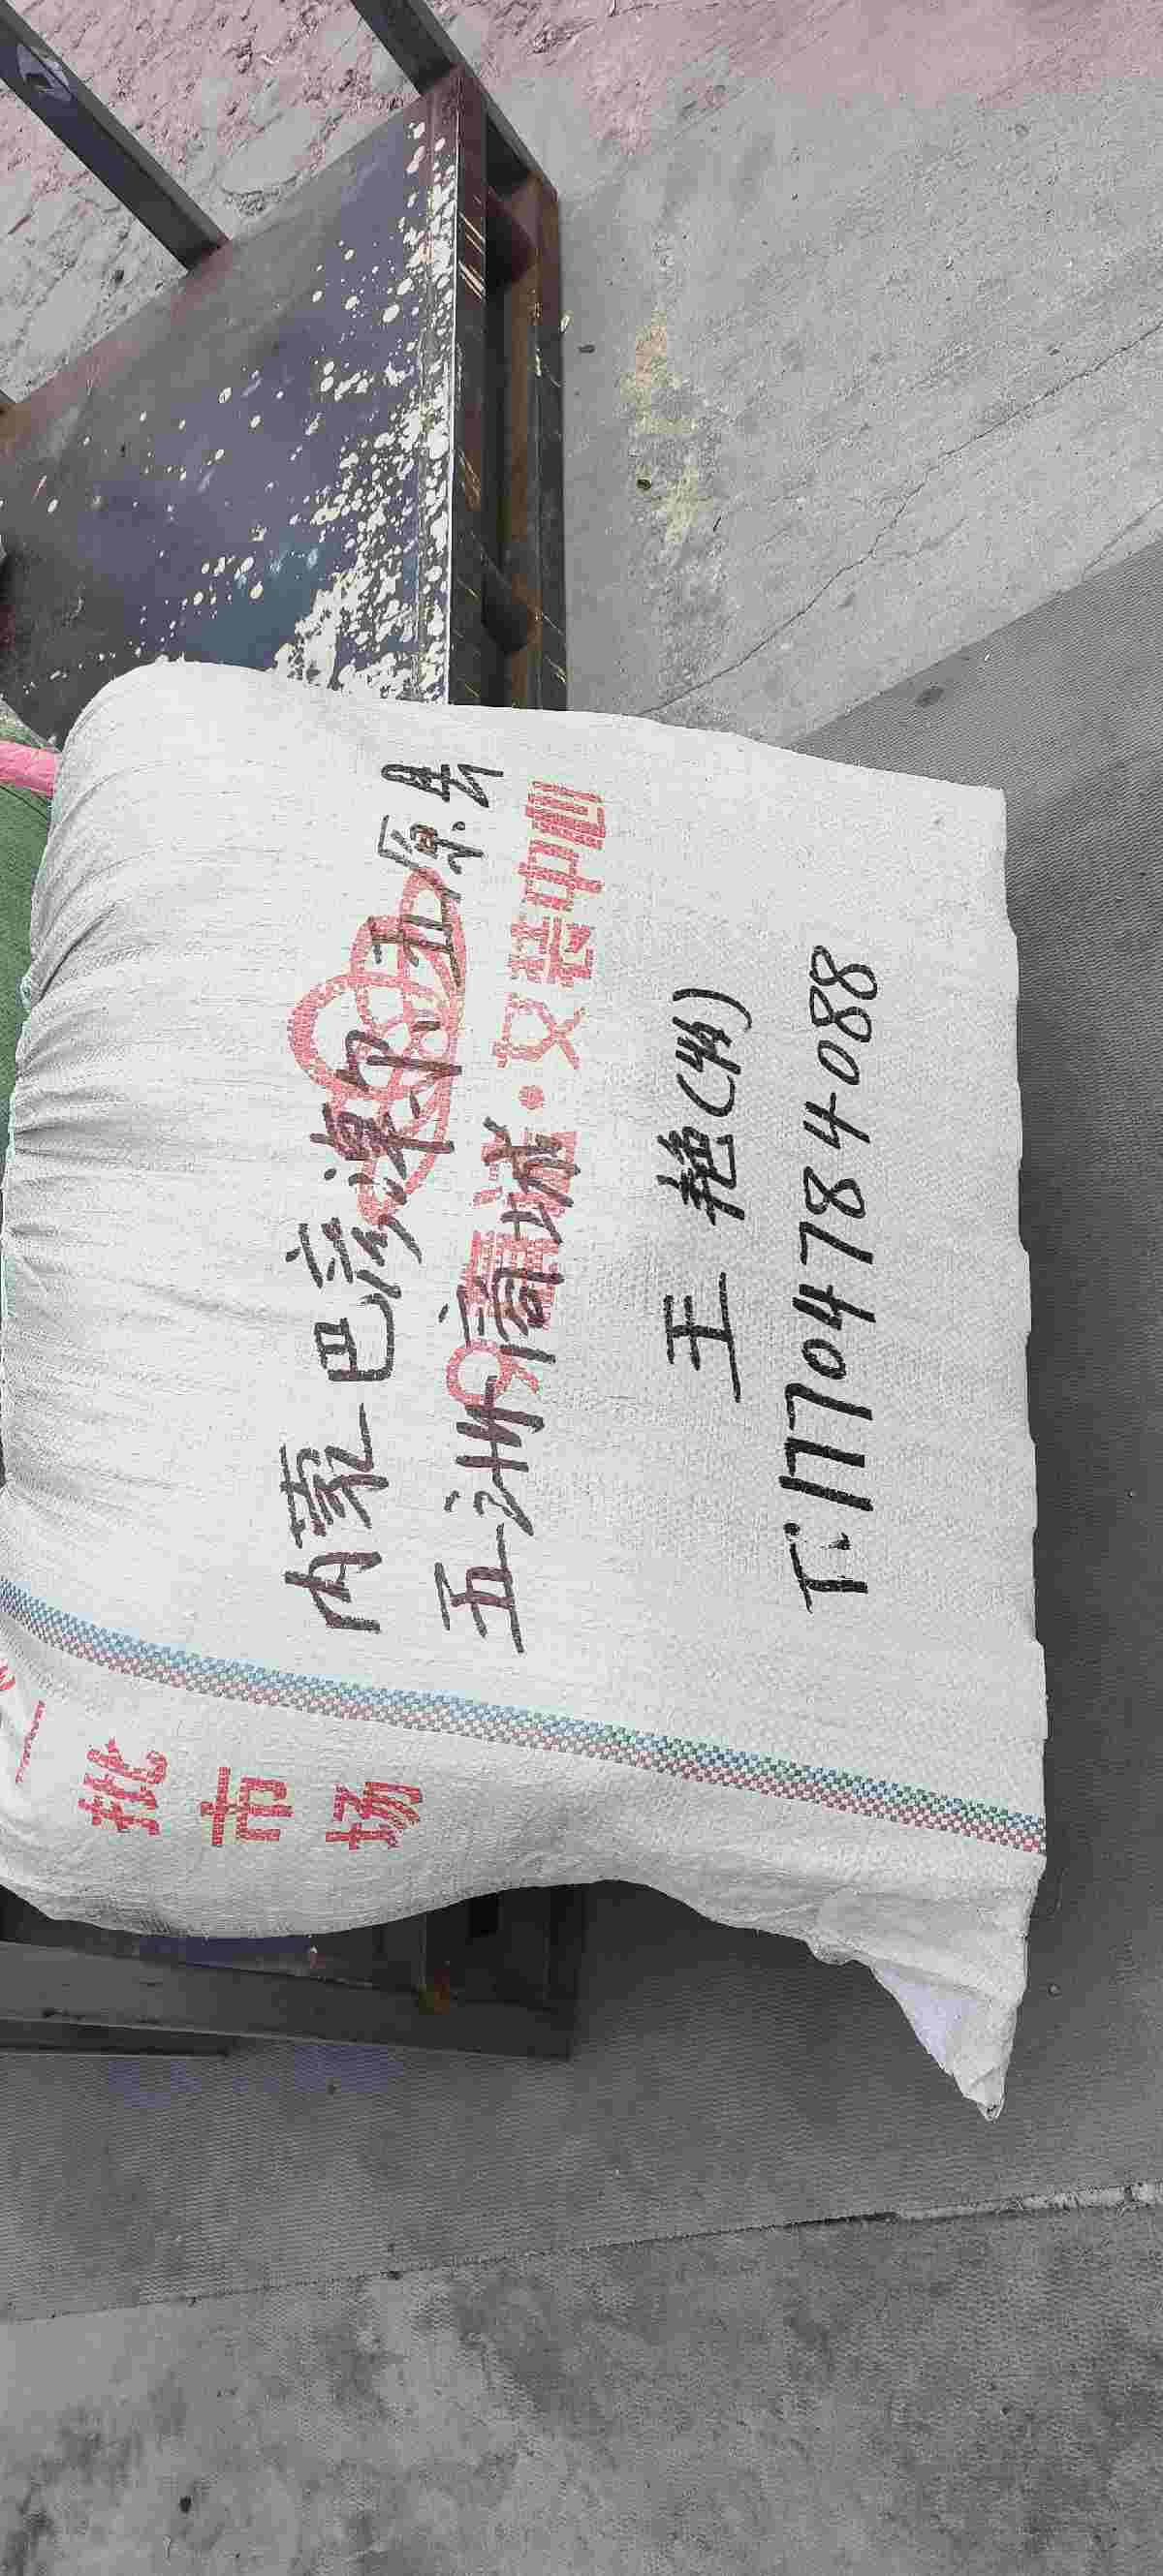 内蒙 巴彦淖尔 五原县
五洲商城
王 艳(收)
T:17704784088
批
市
场